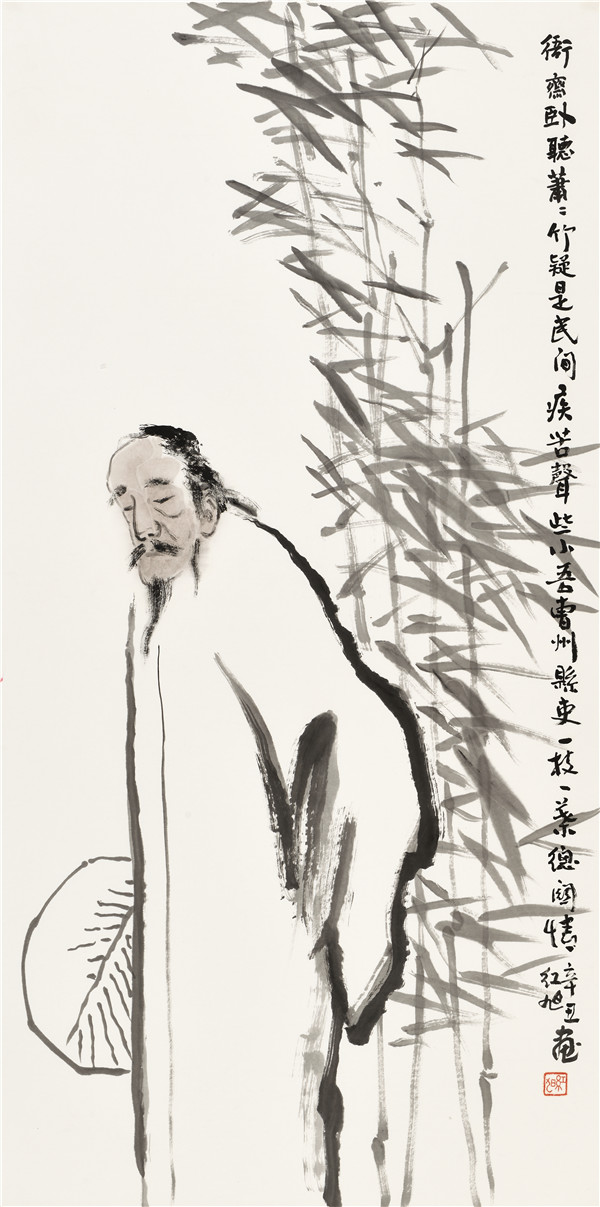 衙齋卧聽蕭〻竹疑是民间疾苦聲些小吾曹州縣吏一枝一葉總関情
辛丑
红旭
画
红旭